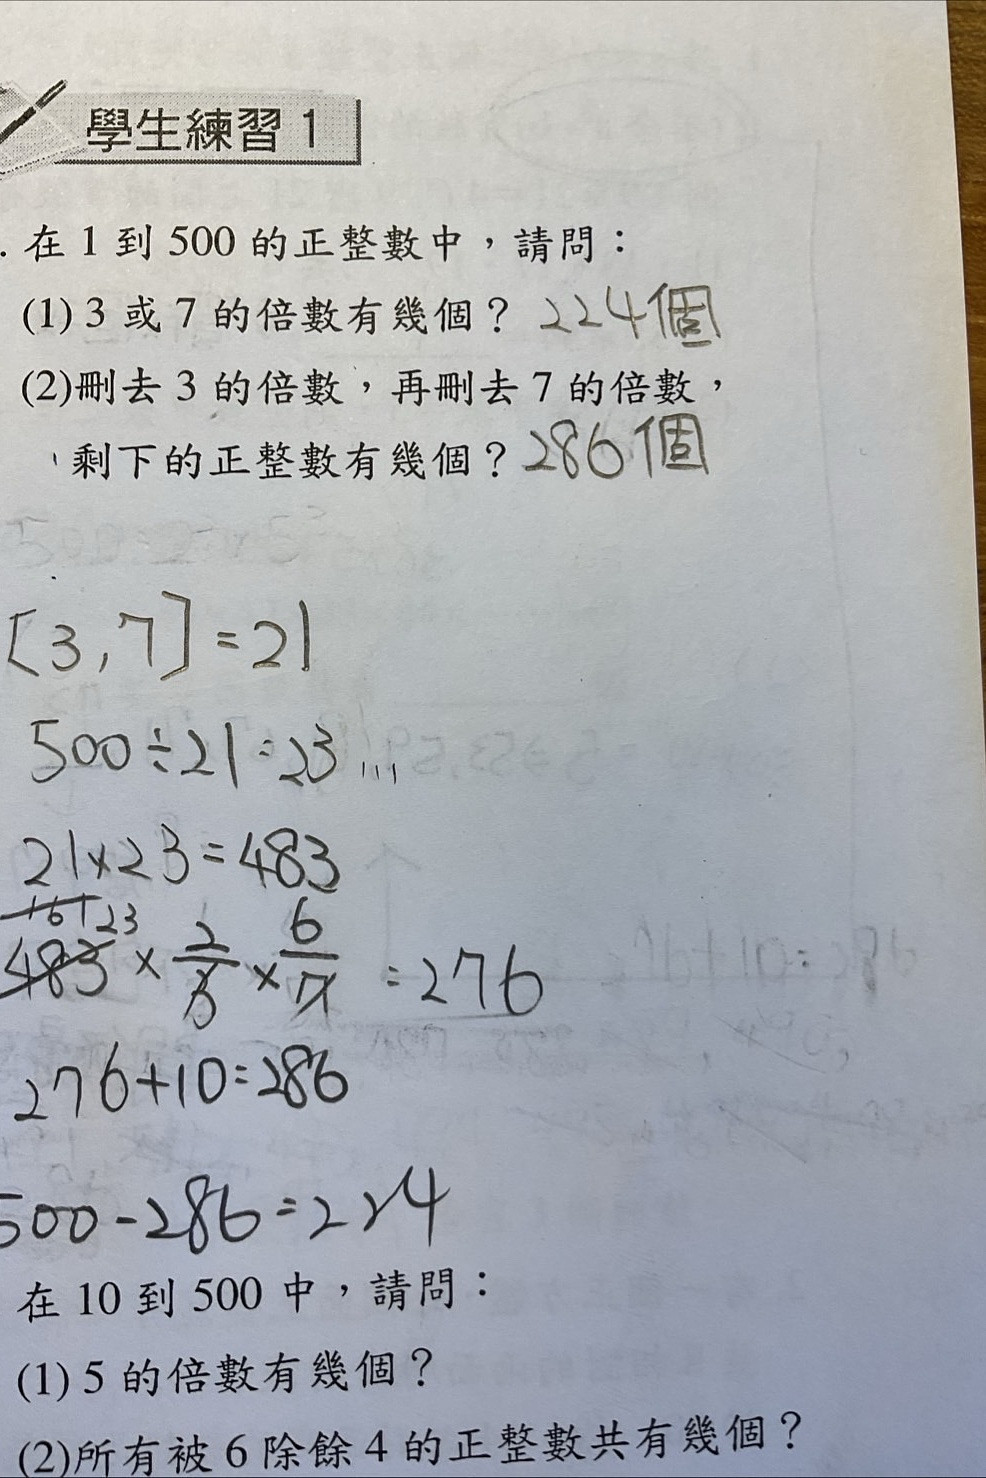 學生練習 1
. 在 1 到 500 的正整數中，請問：
(1) 3 或 7 的倍數有幾個？ 224個
(2)刪去 3 的倍數，再刪去 7 的倍數，
剩下的正整數有幾個？ 286個
[3,7]=21
500÷21=23...
21×23=483
161 23
483 × 2/3 × 6/7 =276
276+10=286
500-286=224
在 10 到 500 中，請問：
(1) 5 的倍數有幾個？
(2)所有被 6 除餘 4 的正整數共有幾個？